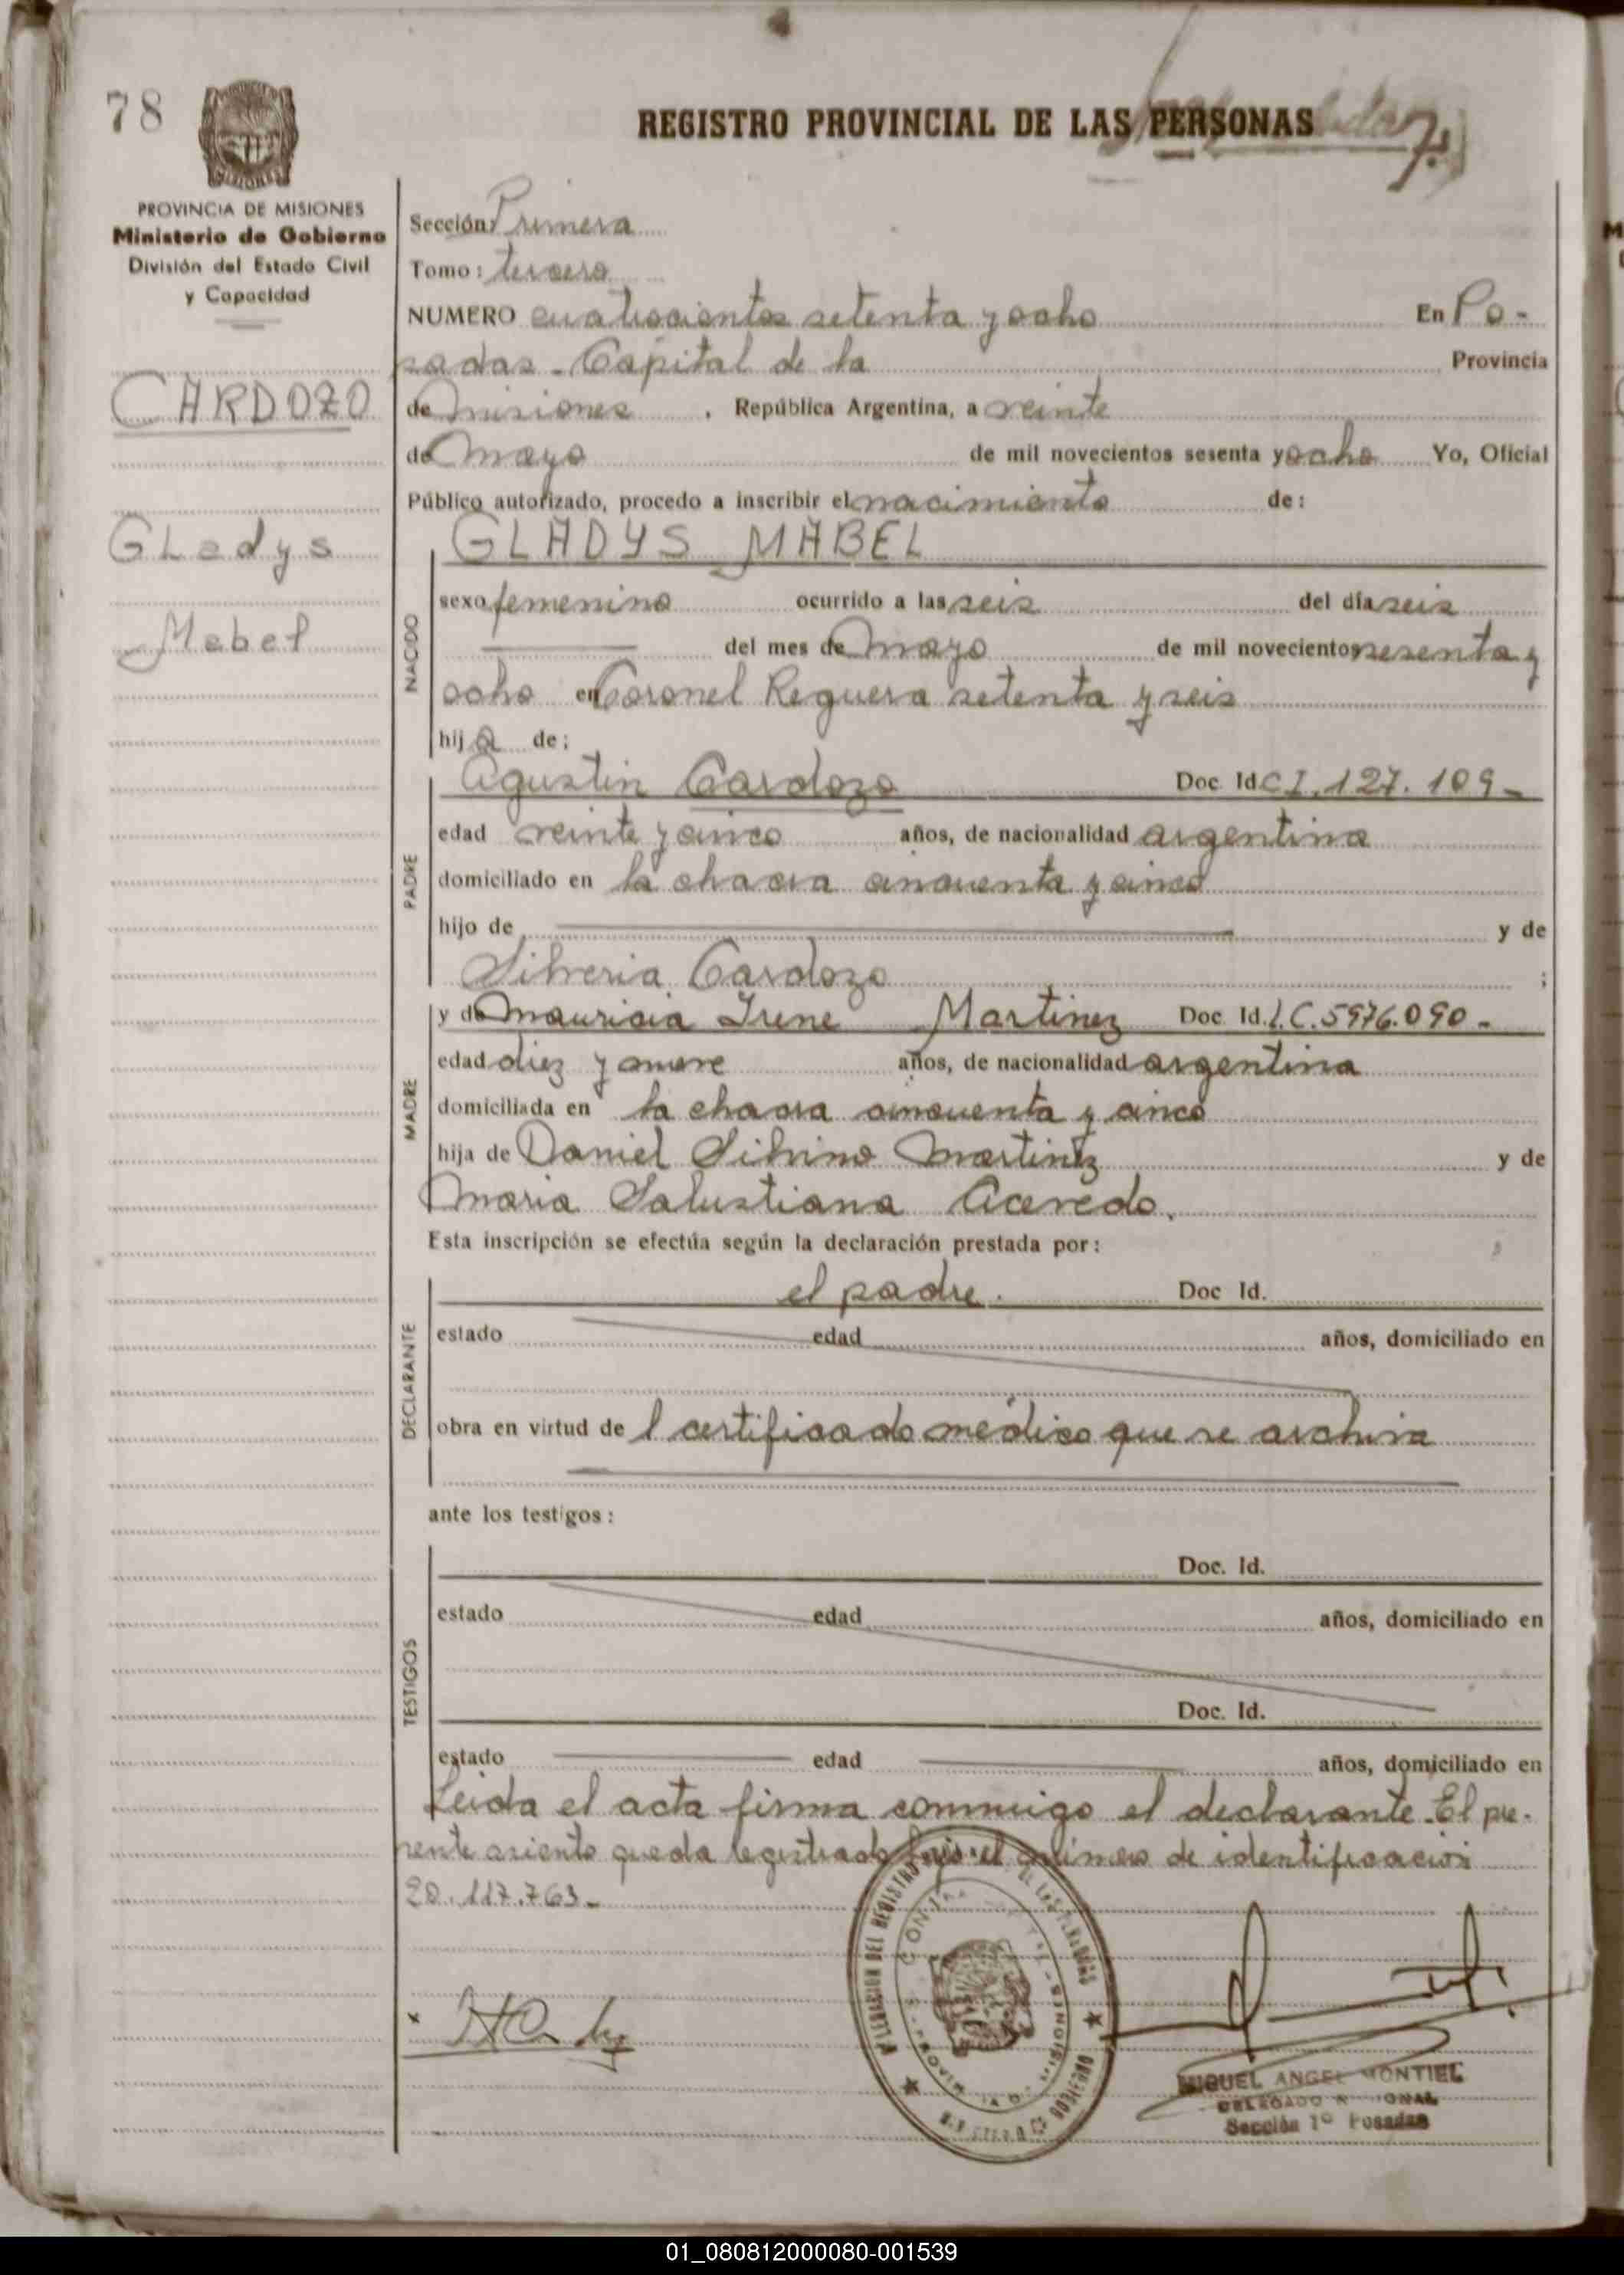 78
REGISTRO PROVINCIAL DE LAS PERSONAS
PROVINCIA DE MISIONES
Ministerio de Gobierno
División del Estado Civil
y Capacidad
CARDOZO
Gladys
Mabel
Sección: Primera
Tomo: tercero
NUMERO cuatrocientos setenta y ocho En Po-
sadas - Capital de la Provincia
de misiones, República Argentina, a veinte
de mayo de mil novecientos sesenta y ocho Yo, Oficial
Público autorizado, procedo a inscribir el nacimiento de:
GLADYS MABEL
NACIDO
sexo femenino ocurrido a las seis del día seis
del mes de mayo de mil novecientos sesenta y
ocho en Coronel Reguera setenta y seis
hija de:
PADRE
Agustin Cardozo Doc Id. C I. 127. 109-
edad veinte y cinco años, de nacionalidad argentina
domiciliado en la chacra cincuenta y cinco
hijo de y de
Silveria Cardozo ;
MADRE
y de mauricia Irene Martinez Doc. Id. L.C. 5976.090-
edad diez y nueve años, de nacionalidad argentina
domiciliada en la chacra cincuenta y cinco
hija de Daniel Silvino Martinez y de
Maria Salustiana Acevedo.
Esta inscripción se efectúa según la declaración prestada por:
DECLARANTE
el padre. Doc Id.
estado edad años, domiciliado en
obra en virtud de l certificado médico que se archiva
ante los testigos:
TESTIGOS
Doc. Id.
estado edad años, domiciliado en
Doc. Id.
estado edad años, domiciliado en
Leida el acta firma conmigo el declarante. El pre-
sente asiento queda registrado bajo el número de identificación
20.117.763-
MIGUEL ANGEL MONTIEL
DELEGADO
Sección 1º Posadas
01_080812000080-001539